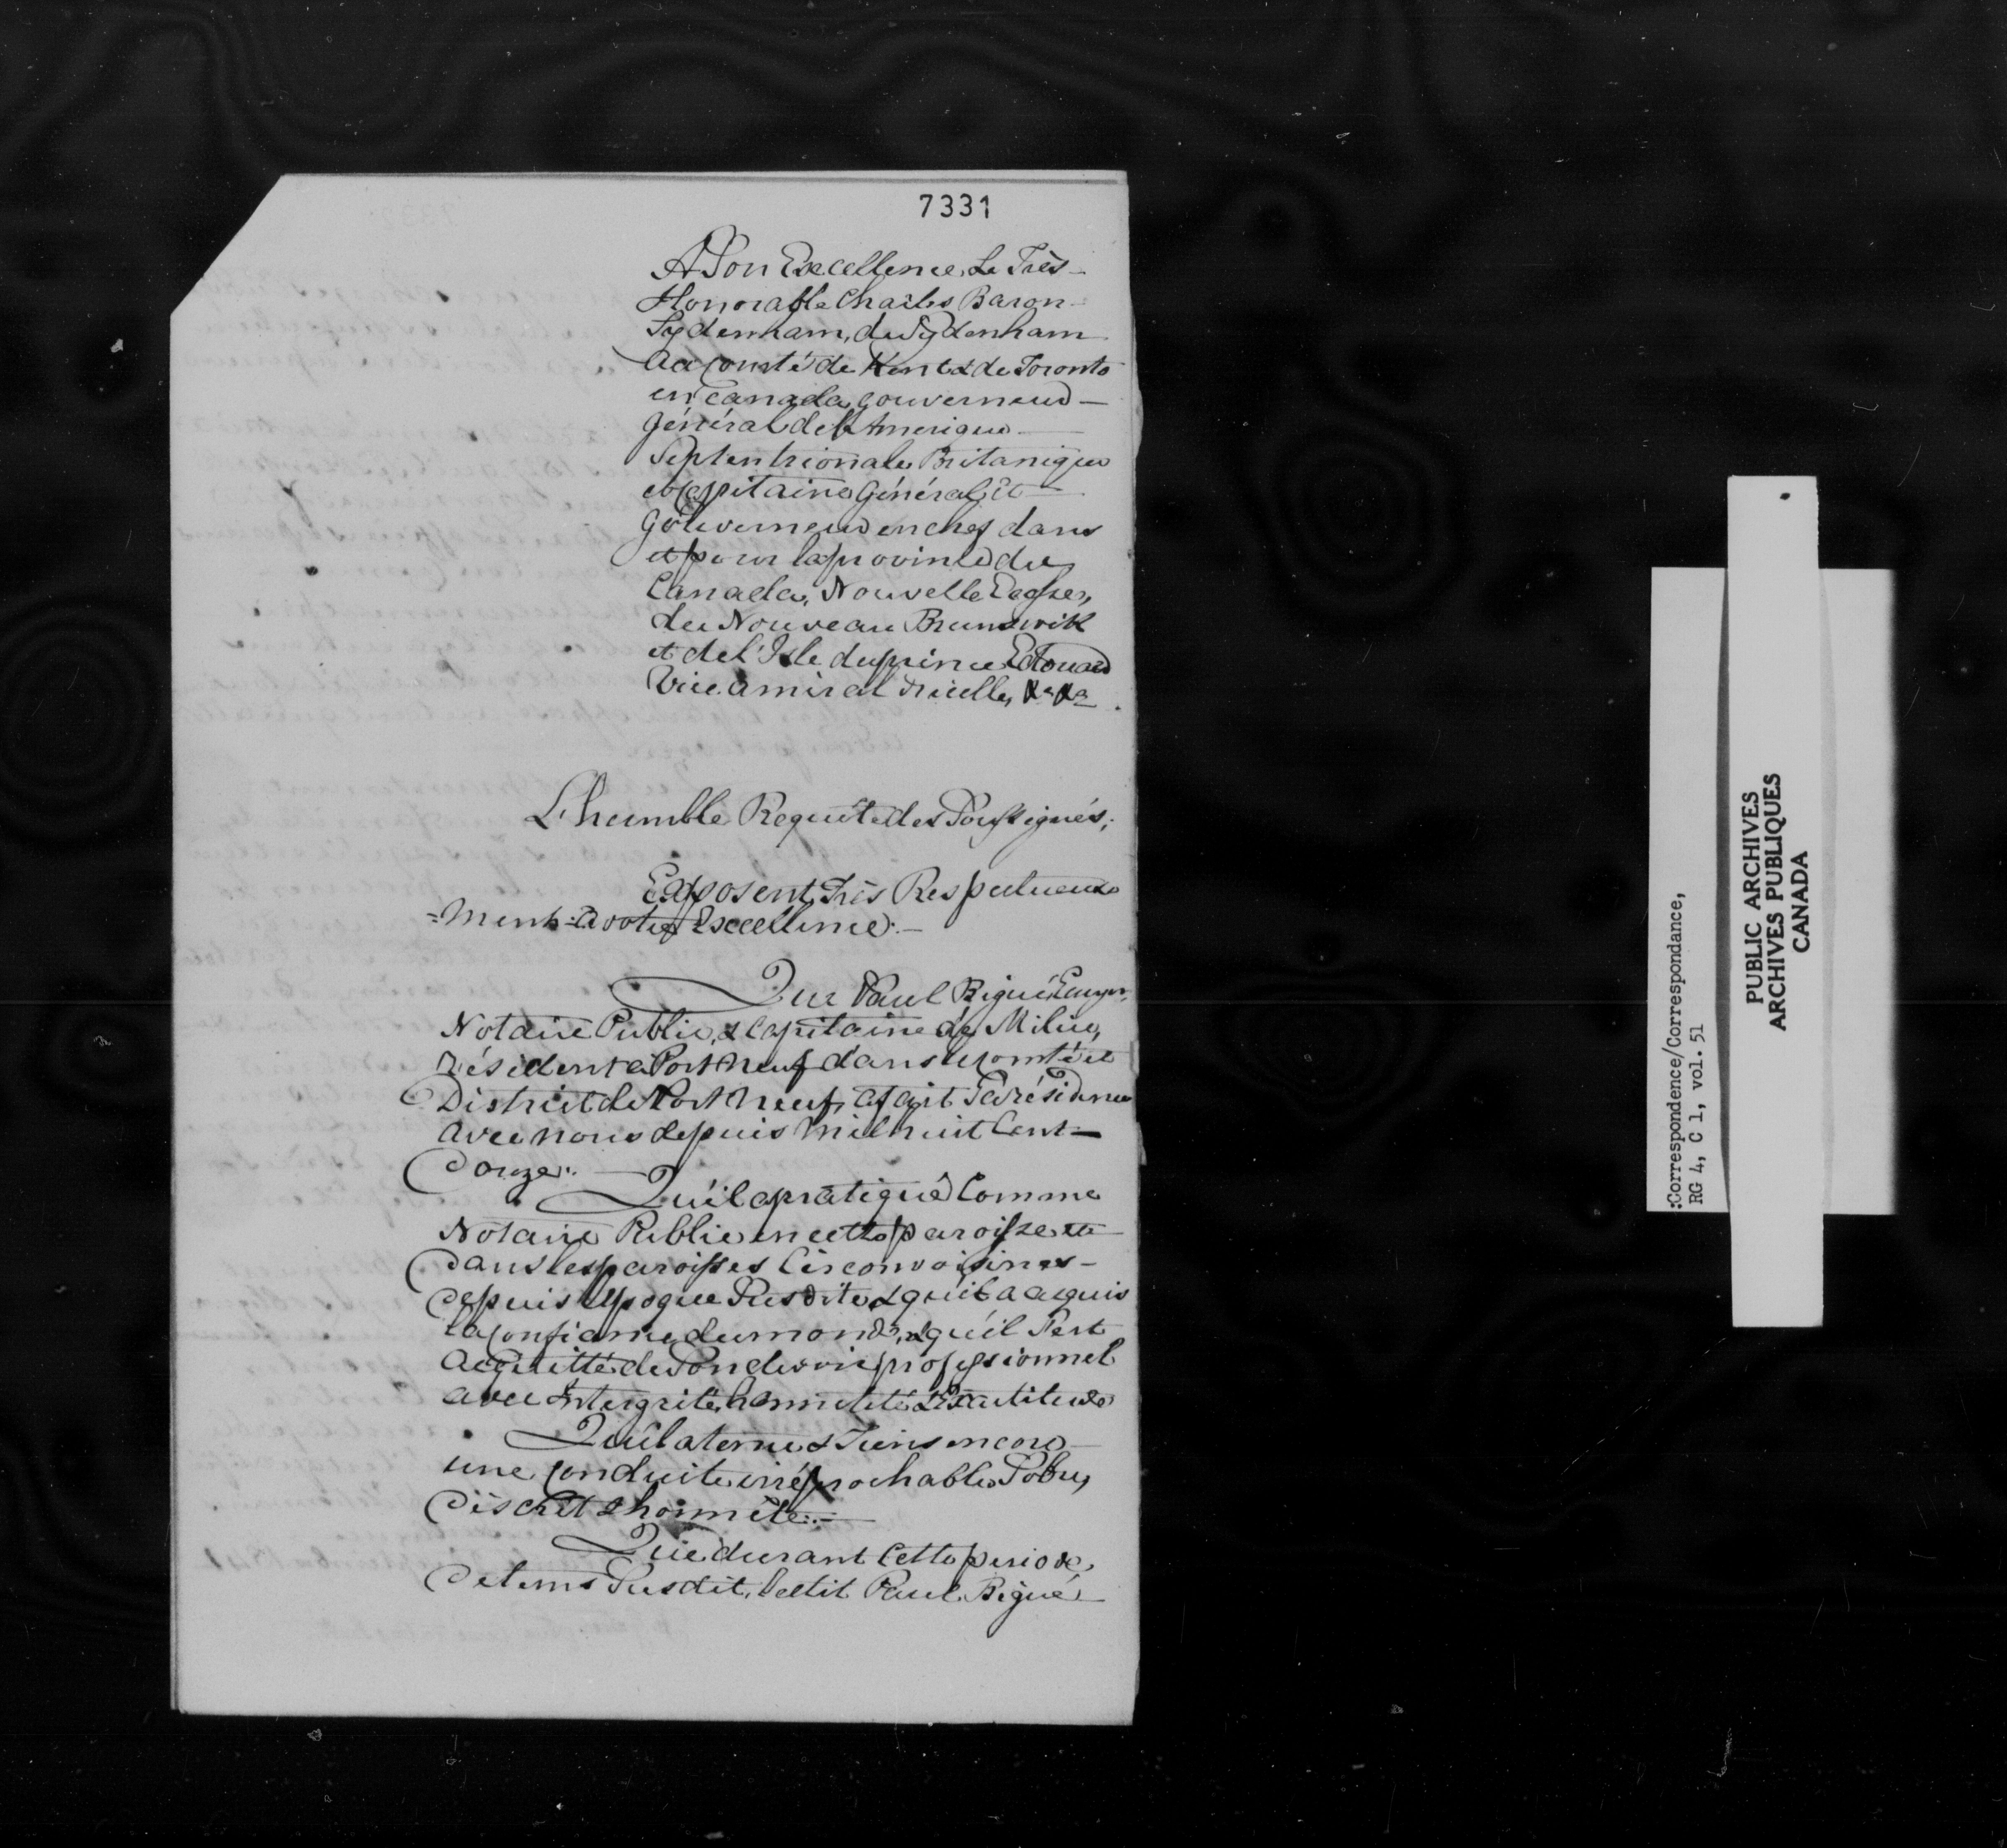 7331
A Son Excellence Le Très-
Honorable Charles Baron
Sydenham, de Sydenham
au Comté de Kent & de Toronto
en Canada gouverneur
Général de l'Amerique
Septentrionale Britanique
et Capitaine Général, et
Gouverneur en chef dans
et pour la province du
Canada, Nouvelle Ecosse,
du Nouveau Brunswik
et de l'Isle du prince Edouard
Vice amiral d'icelle, &a &a
L'humble Requête des Soussignés;
Exposent, Très Respectueuse
=ment à votre Excellence.-
Que Paul Bigué, Ecuyer,
Notaire Public, & Capitaine de Milice,
résident à Portneuf dans le Comté et
District de Portneuf, a fait Sa résidence
avec nous depuis Mil huit Cent-
douze.
Qu'il a pratiqué Comme
Notaire Public en cette paroisse et
dans les paroisses Circonvoisines-
depuis l'époque Susdite, & qu'il a acquis
la confiance du monde, & qu'il S'est
acquitté de Son devoir professionnel
avec Intégrité, honnêteté & Exactitude
Qu'il a tenu & Tiens encore
une Conduite irréprochable, Sobre,
discret & honnête.-
Que durant Cette periode,
de tems Susdit, ledit Paul Bigué
:Correspondence/Correspondance,
RG 4, C 1, vol. 51
PUBLIC ARCHIVES
ARCHIVES PUBLIQUES
CANADA